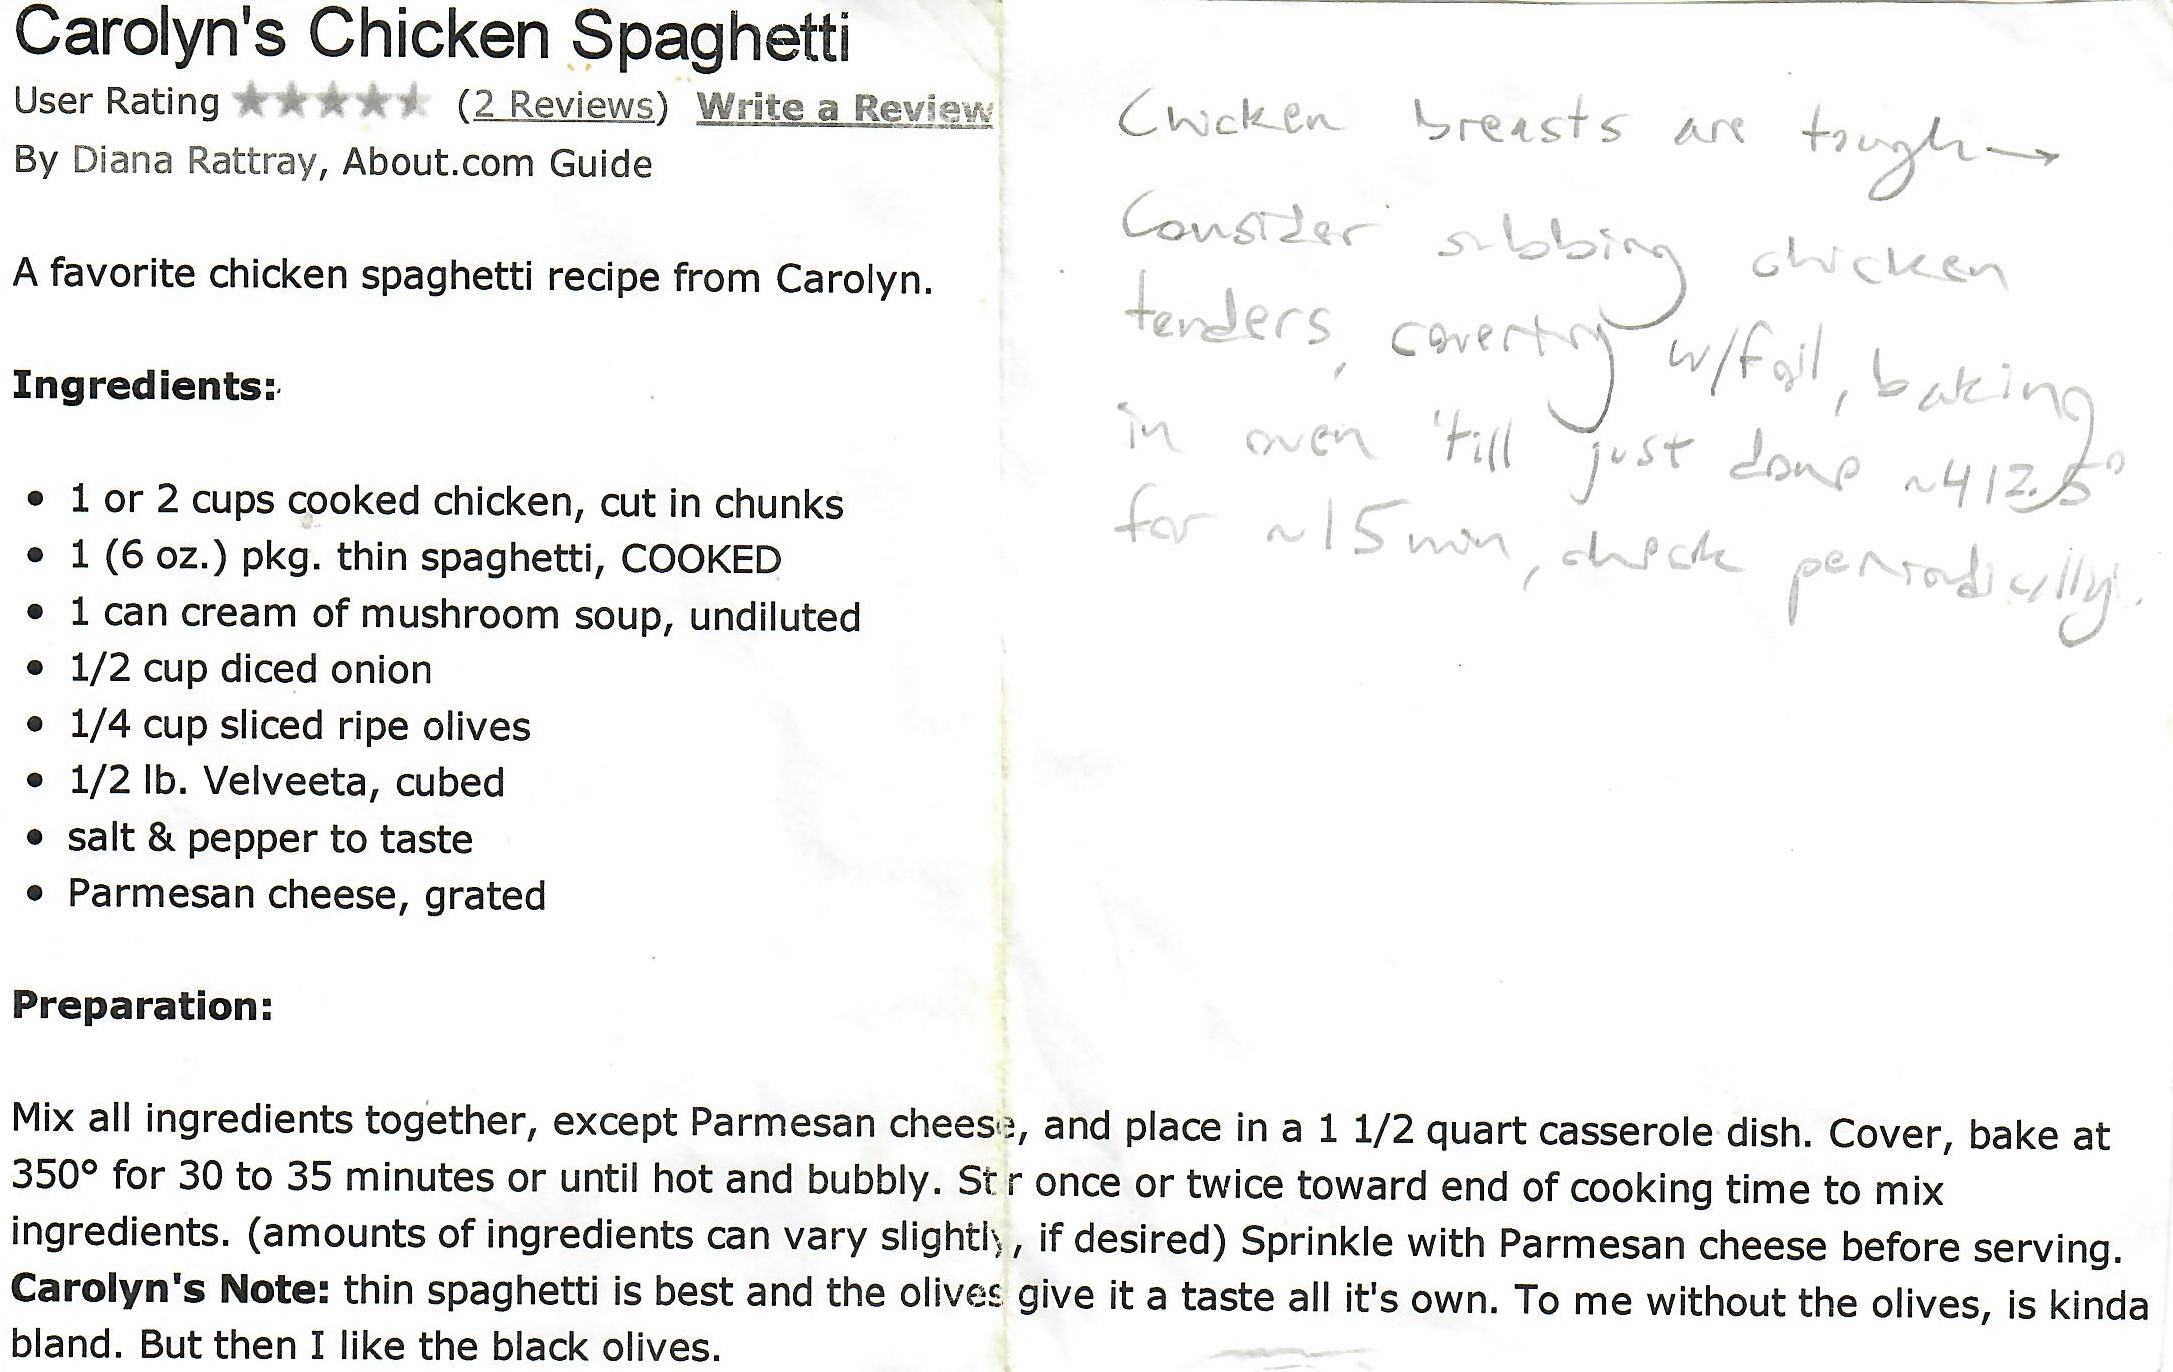 Carolyn's Chicken Spaghetti
User Rating (2 Reviews) Write a Review
By Diana Rattray, About.com Guide
A favorite chicken spaghetti recipe from Carolyn.
Ingredients:
• 1 or 2 cups cooked chicken, cut in chunks
• 1 (6 oz.) pkg. thin spaghetti, COOKED
• 1 can cream of mushroom soup, undiluted
• 1/2 cup diced onion
• 1/4 cup sliced ripe olives
• 1/2 lb. Velveeta, cubed
• salt & pepper to taste
• Parmesan cheese, grated
Chicken breasts are tough →
Consider subbing chicken
tenders, covering w/foil, baking
in oven 'till just done ~412.5°
for ~15 min, check periodically.
Preparation:
Mix all ingredients together, except Parmesan cheese, and place in a 1 1/2 quart casserole dish. Cover, bake at
350° for 30 to 35 minutes or until hot and bubbly. Stir once or twice toward end of cooking time to mix
ingredients. (amounts of ingredients can vary slightly, if desired) Sprinkle with Parmesan cheese before serving.
Carolyn's Note: thin spaghetti is best and the olives give it a taste all it's own. To me without the olives, is kinda
bland. But then I like the black olives.